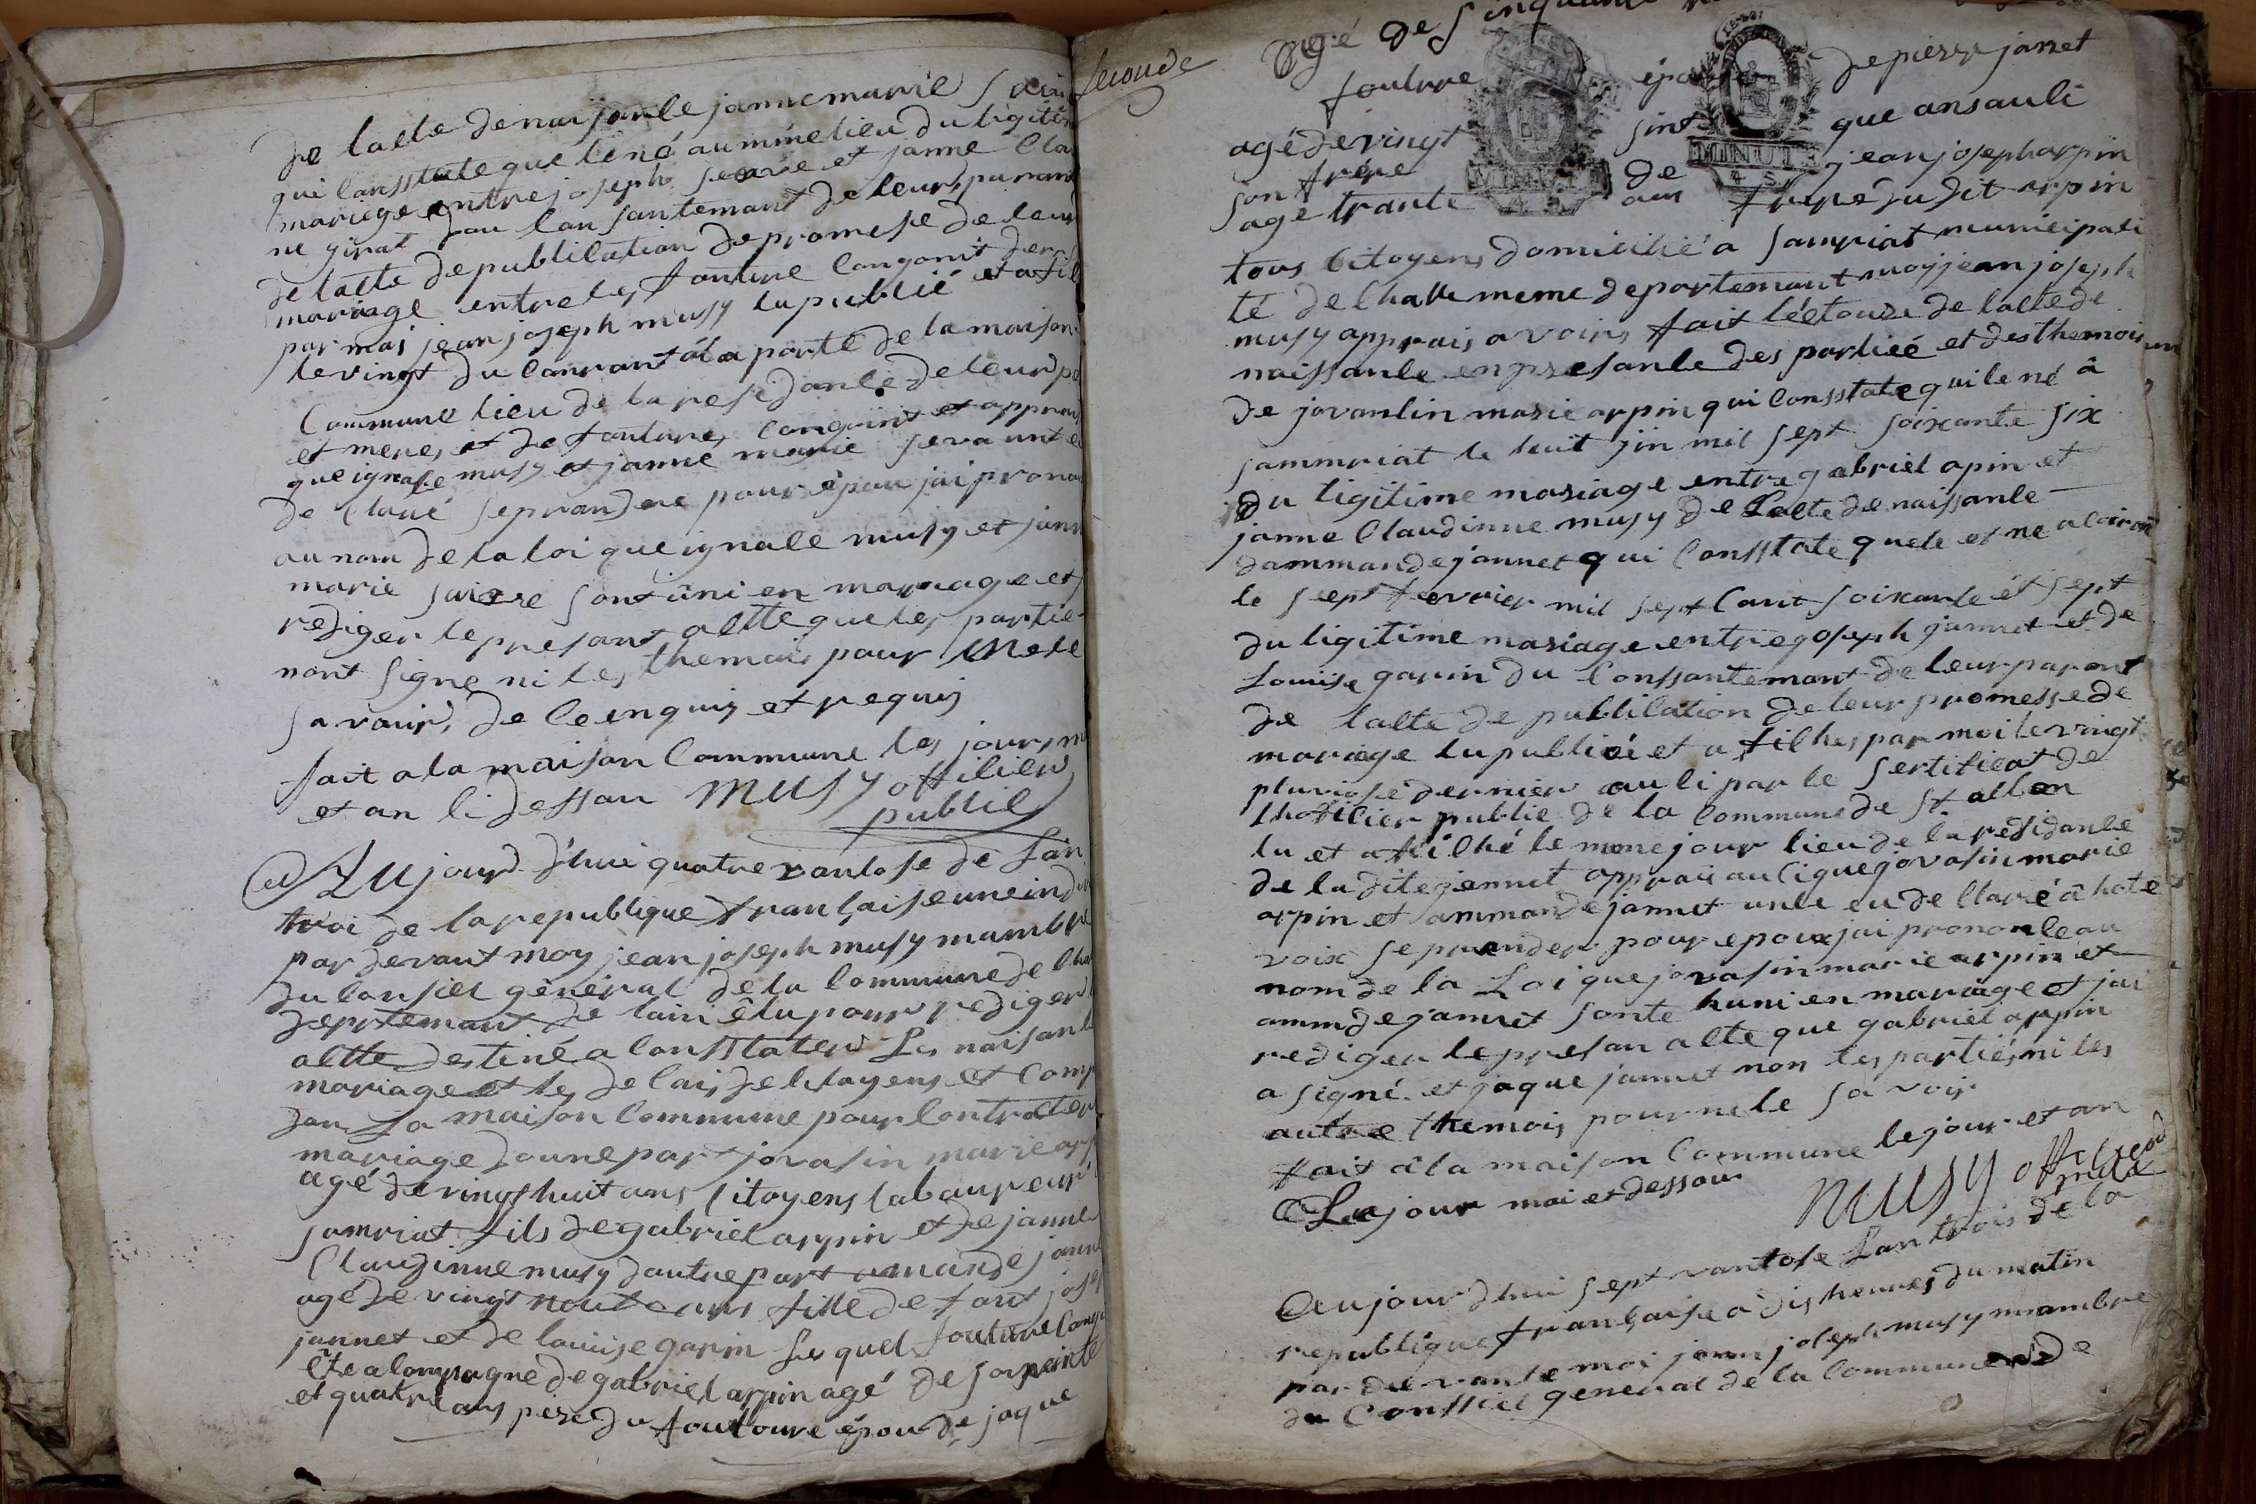 de lacte de naisanle jannemarie
qui lonsstate que le né au mime lieu du ligitim
mariage entre joseph et janne Cla
ne girat dou lonsantemant de leur paran
de lalte de publilation de promese de leur
mariage entre les fouture longoint
par moi jean joseph musy lu publié et a fil
le vingt du lourant a la porte de la maison
Commune lieu de la residanle de leur pe
et mere et de fouture longoint et apprai
que ignale musy et janne marie
de llaré seprandre pour époux jai prona
au nom de la loi que ignale musy et jann
marie sont uni en mariage et
rediger le presant altte que les partie
nont signe ni les themois pour
savoir, de le enquis et requis
fait a la maison Commune les jours m
et an li dessou musy offilier
publil
Aujourd d'hui quatre vantose de Lan
troi de la republique franlaise une indi
par devant moy jean joseph musy mambre
du lonsiel géneral de la lommune de lha
deprtemant de lain élu pour rediger
altte destiné a lonsstater Les naisanl
mariage et les delais de litoyens et Comp
dan la maison lommune pour lontracter
mariage doune part jovasin marie arp
agé de vingt huit ans litoyens laboureur
samriat fils de gabriel arpin et de janne
Claudinne musy dautre part amande jann
agé de vingt nout ans fille de fant jose
jannet et de louise garin Les quel fouture longo
ette alompagne de gabriel arpin agé de soixante
et quatre ans pere du foutoure époux de jaque
seconde
agé de sinquante
fouture épouse de pierre janet
agé de vingt sint que ansauli
son frére de jean joseph arpin
age trante ans frere du dit arpin
tous litoyens domicilié a samriat municipali
té de Challe meme departemant moy jean joseph
musy apprais avoirs fait léetoure de lalte de
naissanle en presanle des partieé et des themoins
de jovanlin marie arpin qui lonsstate qui le né à
sammriat le huit jin mil sept soixante six
du ligitime mariage entre gabriel apin et
janne Claudinne musy de Lalte de naissanle
dammande jannet qui lonsstate quele et ne a
le sept fevrier mil sept Cant soixante et sept
du ligitime mariage entre goseph jannet et de
Louise garin du lonssantemant de leur parant
de lalte de publilation de leur promesse de
mariage lu publieé et a filhes par moi le vingt
pluviose dernier auli par le sertifilat de
lhofilier publie de la lommune de st alban
lu et affilhé le meme jour lieu de la residanle
de la dite jennet apprais au lique jovasin marie
arpin et ammande jannet unle eu de llaré à hote
voix se prander pour epoux jai prononle au
nom de la Loi que jovasin marie arpin et
ammde jannet sonte huni en mariage et jai
rediger le presan alte que gabriel arpin
a signé et jaque jannet non les partiés ni les
autre themois pour ne le savoir
fait à la maison Commune le jour et an
Le jour moi et dessour
musy
Aujourdhui sept vantose Lan trois de la
republique franlaise a dis heures du matin
par devante moi jean joseph musy mambre
du Conssiel general de la lommune de